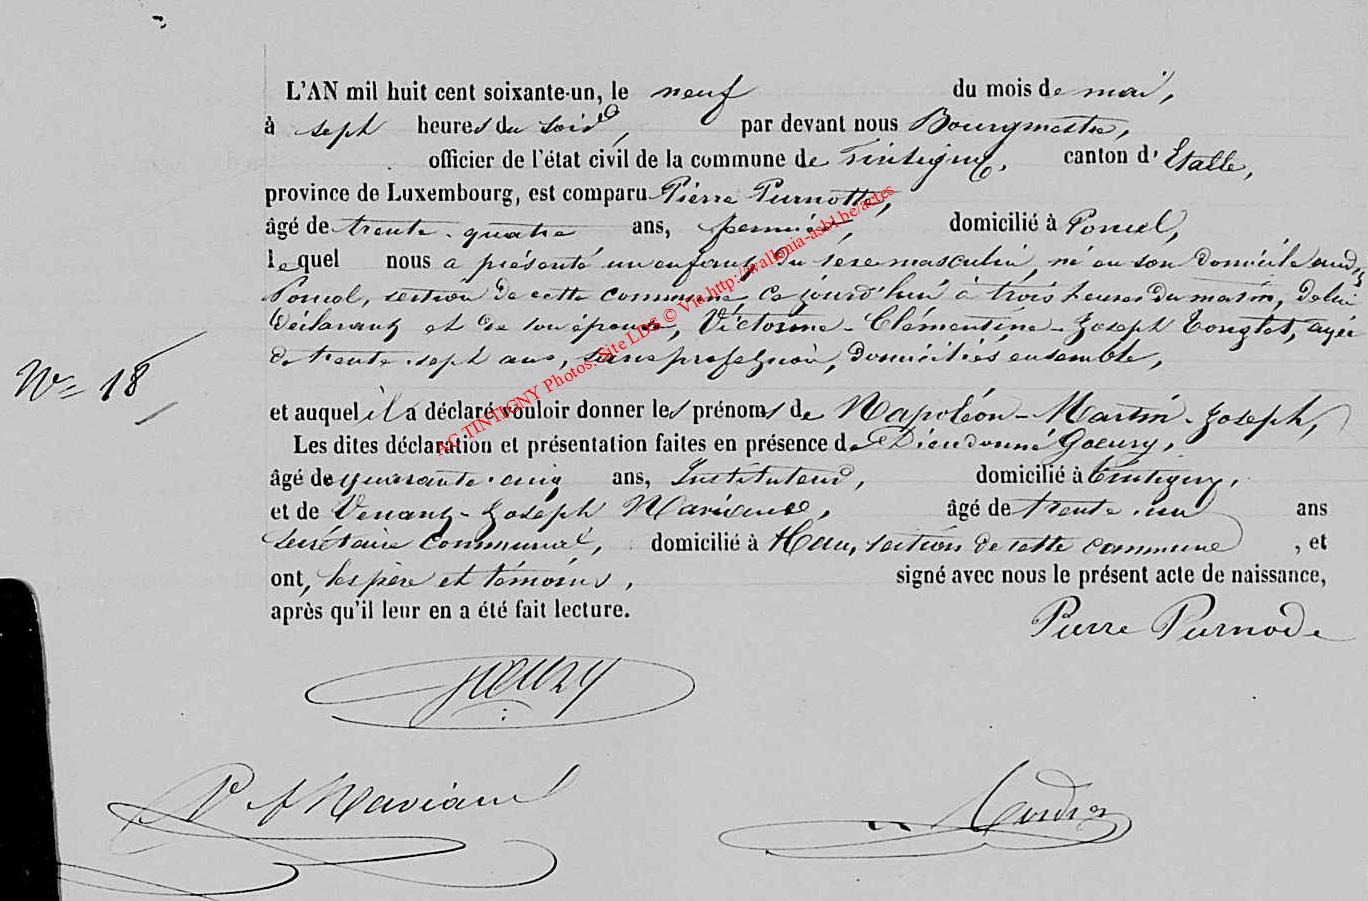 L'AN mil huit cent soixante-un, le neuf du mois de mai,
à sept heures du soir, par devant nous Bourgmestre,
officier de l'état civil de la commune de Tintigny, canton d'Etalle,
province de Luxembourg, est comparu Pierre Purnotte,
âgé de trente-quatre ans, fermier, domicilié à Poncel,
lequel nous a présenté un enfant du sexe masculin, né en son domicile audt
Poncel, section de cette commune, ce jourd'hui à trois heures du matin, de lui
déclarant et de son épouse, Victorine-Clémentine-Joseph Tonglet, agée
de trente-sept ans, sans profession, domiciliés ensemble,
N° 18
et auquel il a déclaré vouloir donner les prénoms de Napoléon-Martin-Joseph,
Les dites déclaration et présentation faites en présence de Dieudonné Goeury,
âgé de quarante-cinq ans, Instituteur, domicilié à Tintigny,
et de Venant-Joseph Maviance, âgé de trente-un ans
Secrétaire Communal, domicilié à Han, section de cette commune, et
ont, les père et témoins, signé avec nous le présent acte de naissance,
après qu'il leur en a été fait lecture.
Pierre Purnode
Goeury
AC TINTIGNY Photos. Site LDS © Via http://wallonia-asbl.be/actes